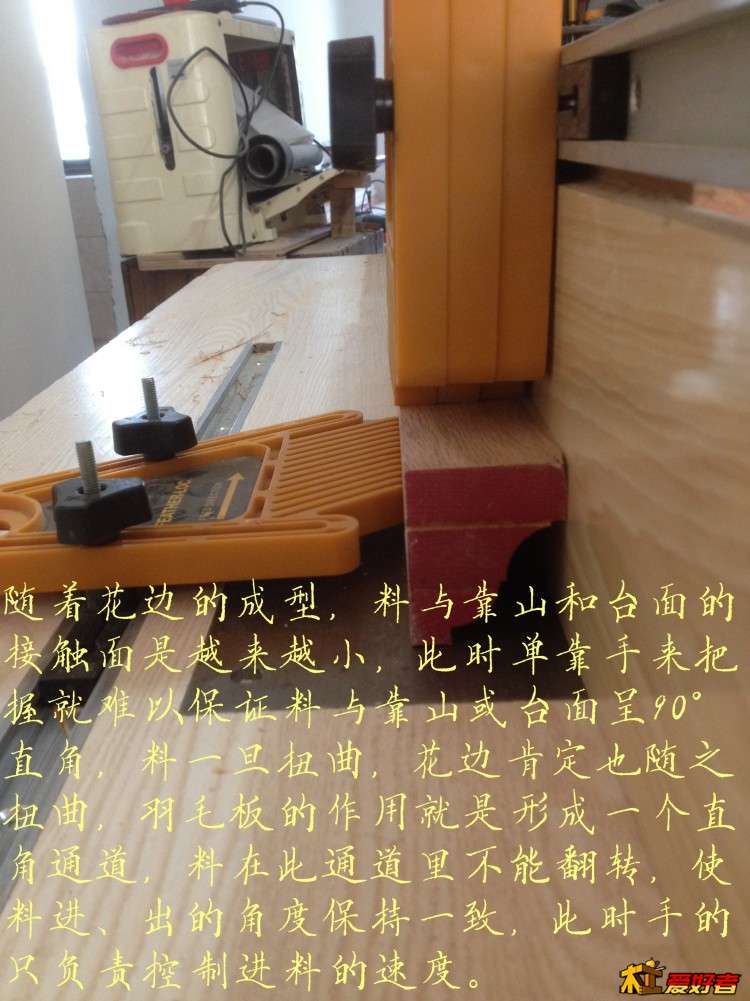 FEATHER-LOC
随着花边的成型，料与靠山和台面的
接触面是越来越小，此时单靠手来把
握就难以保证料与靠山或台面呈90°
直角，料一旦扭曲，花边肯定也随之
扭曲，羽毛板的作用就是形成一个直
角通道，料在此通道里不能翻转，使
料进、出的角度保持一致，此时手的
只负责控制进料的速度。
木工爱好者